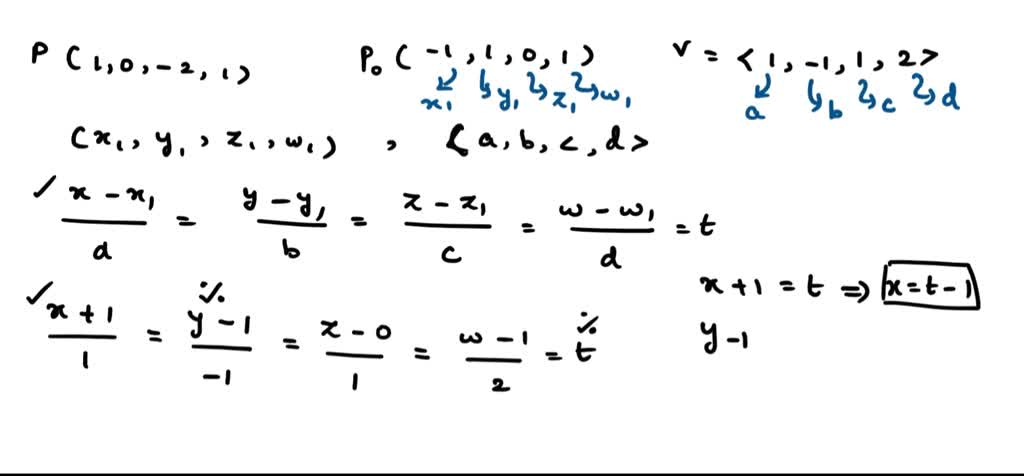 P ( 1 , 0 , -2 , 1 ) P₀ ( -1 , 1 , 0 , 1 ) v = < 1 , -1 , 1 , 2 >
x₁ y₁ z₁ w₁ a b c d
( x₁ , y₁ , z₁ , w₁ ) , < a , b , c , d >
✓ (x - x₁)/a = (y - y₁)/b = (z - z₁)/c = (w - w₁)/d = t
x + 1 = t ⇒ x = t - 1
✓ (x + 1)/1 = (y - 1)/-1 = (z - 0)/1 = (w - 1)/2 = t
y - 1